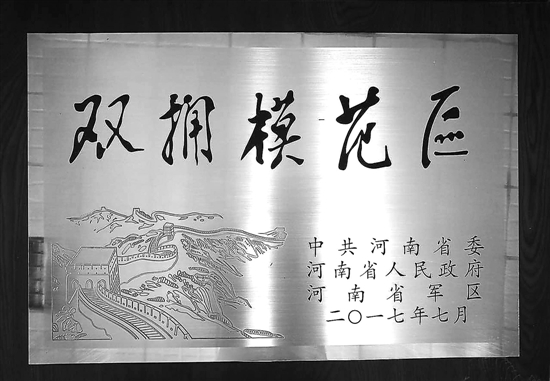 双拥模范区
中共河南省委
河南省人民政府
河南省军区
二〇一七年七月